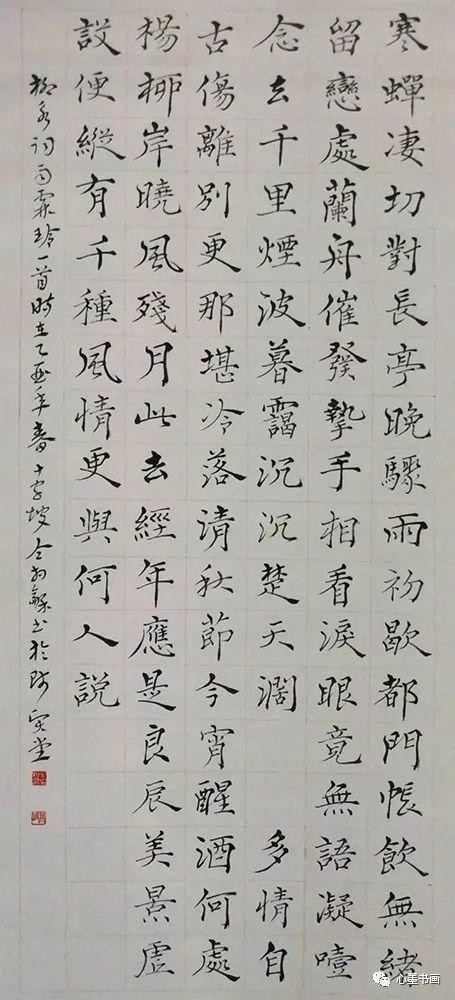 寒蟬凄切對長亭晚驟雨初歇都門帳飲無緒
留戀處蘭舟催發摯手相看淚眼竟無語凝噎
念去千里煙波暮靄沉沉楚天濶 多情自
古傷離別更那堪冷落清秋節今宵醒酒何處
楊桺岸曉風殘月此去經年應是良辰美景虛
設便縱有千種風情更與何人說
柳永詞雨霖玲一首時在乙亥年春十字坡 書於 堂
心墨书画